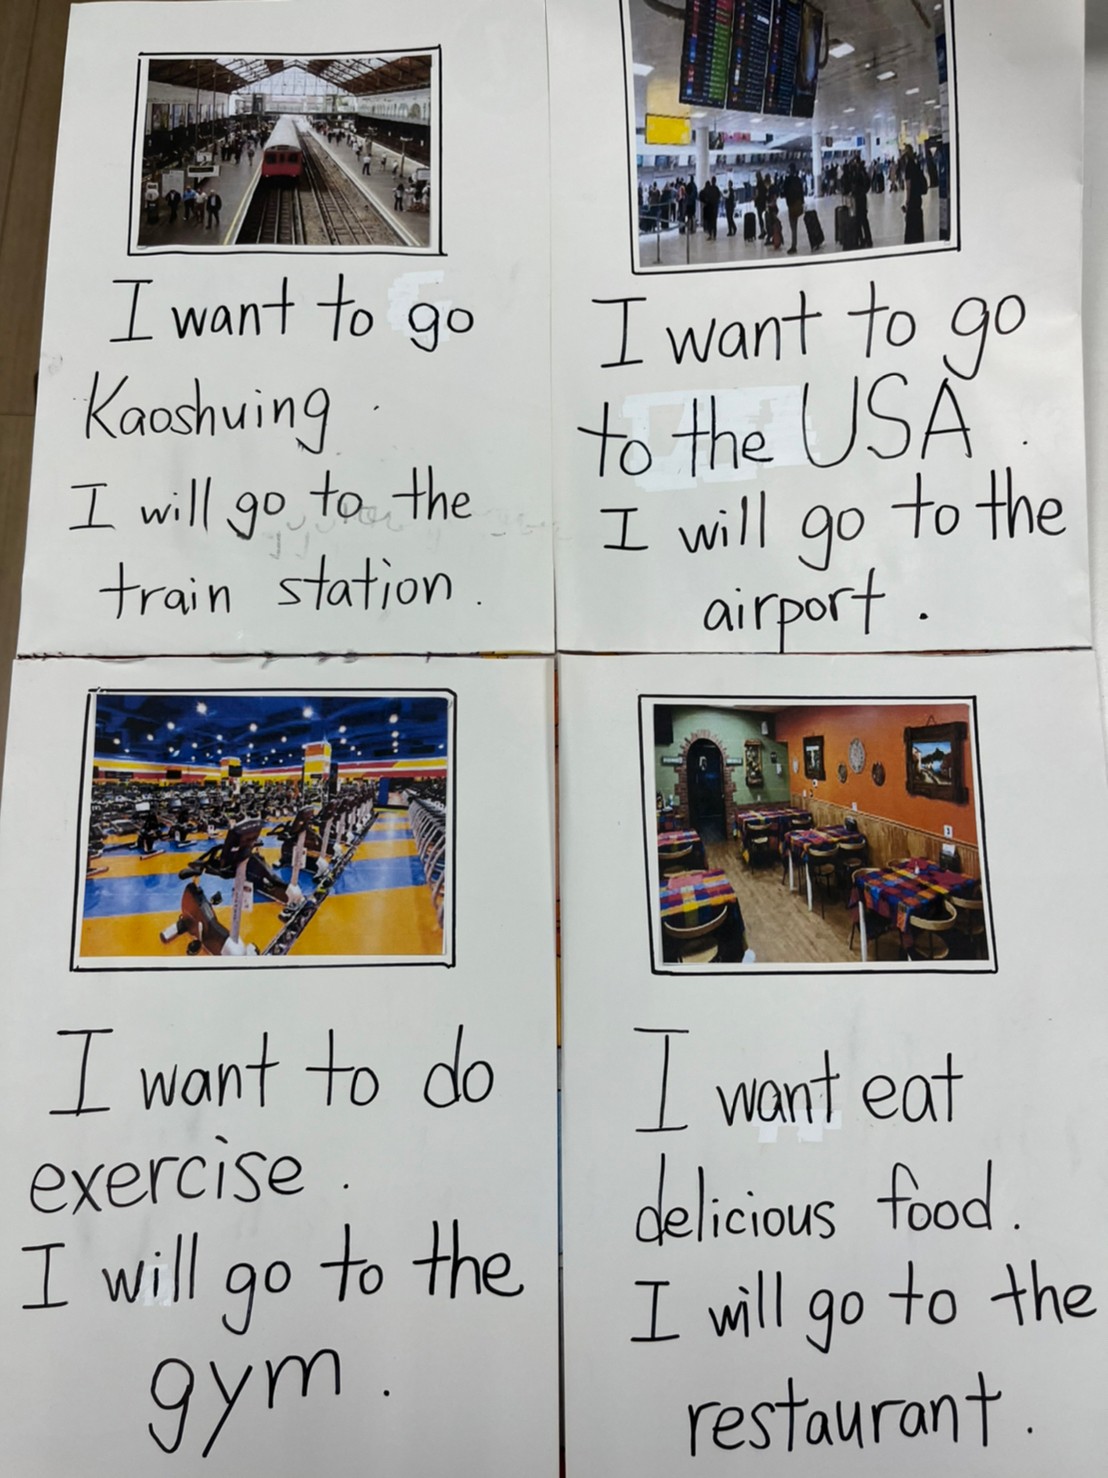 I want to go
Kaoshuing.
I will go to the
train station.
I want to go
to the USA.
I will go to the
airport.
I want to do
exercise.
I will go to the
gym.
I want eat
delicious food.
I will go to the
restaurant.